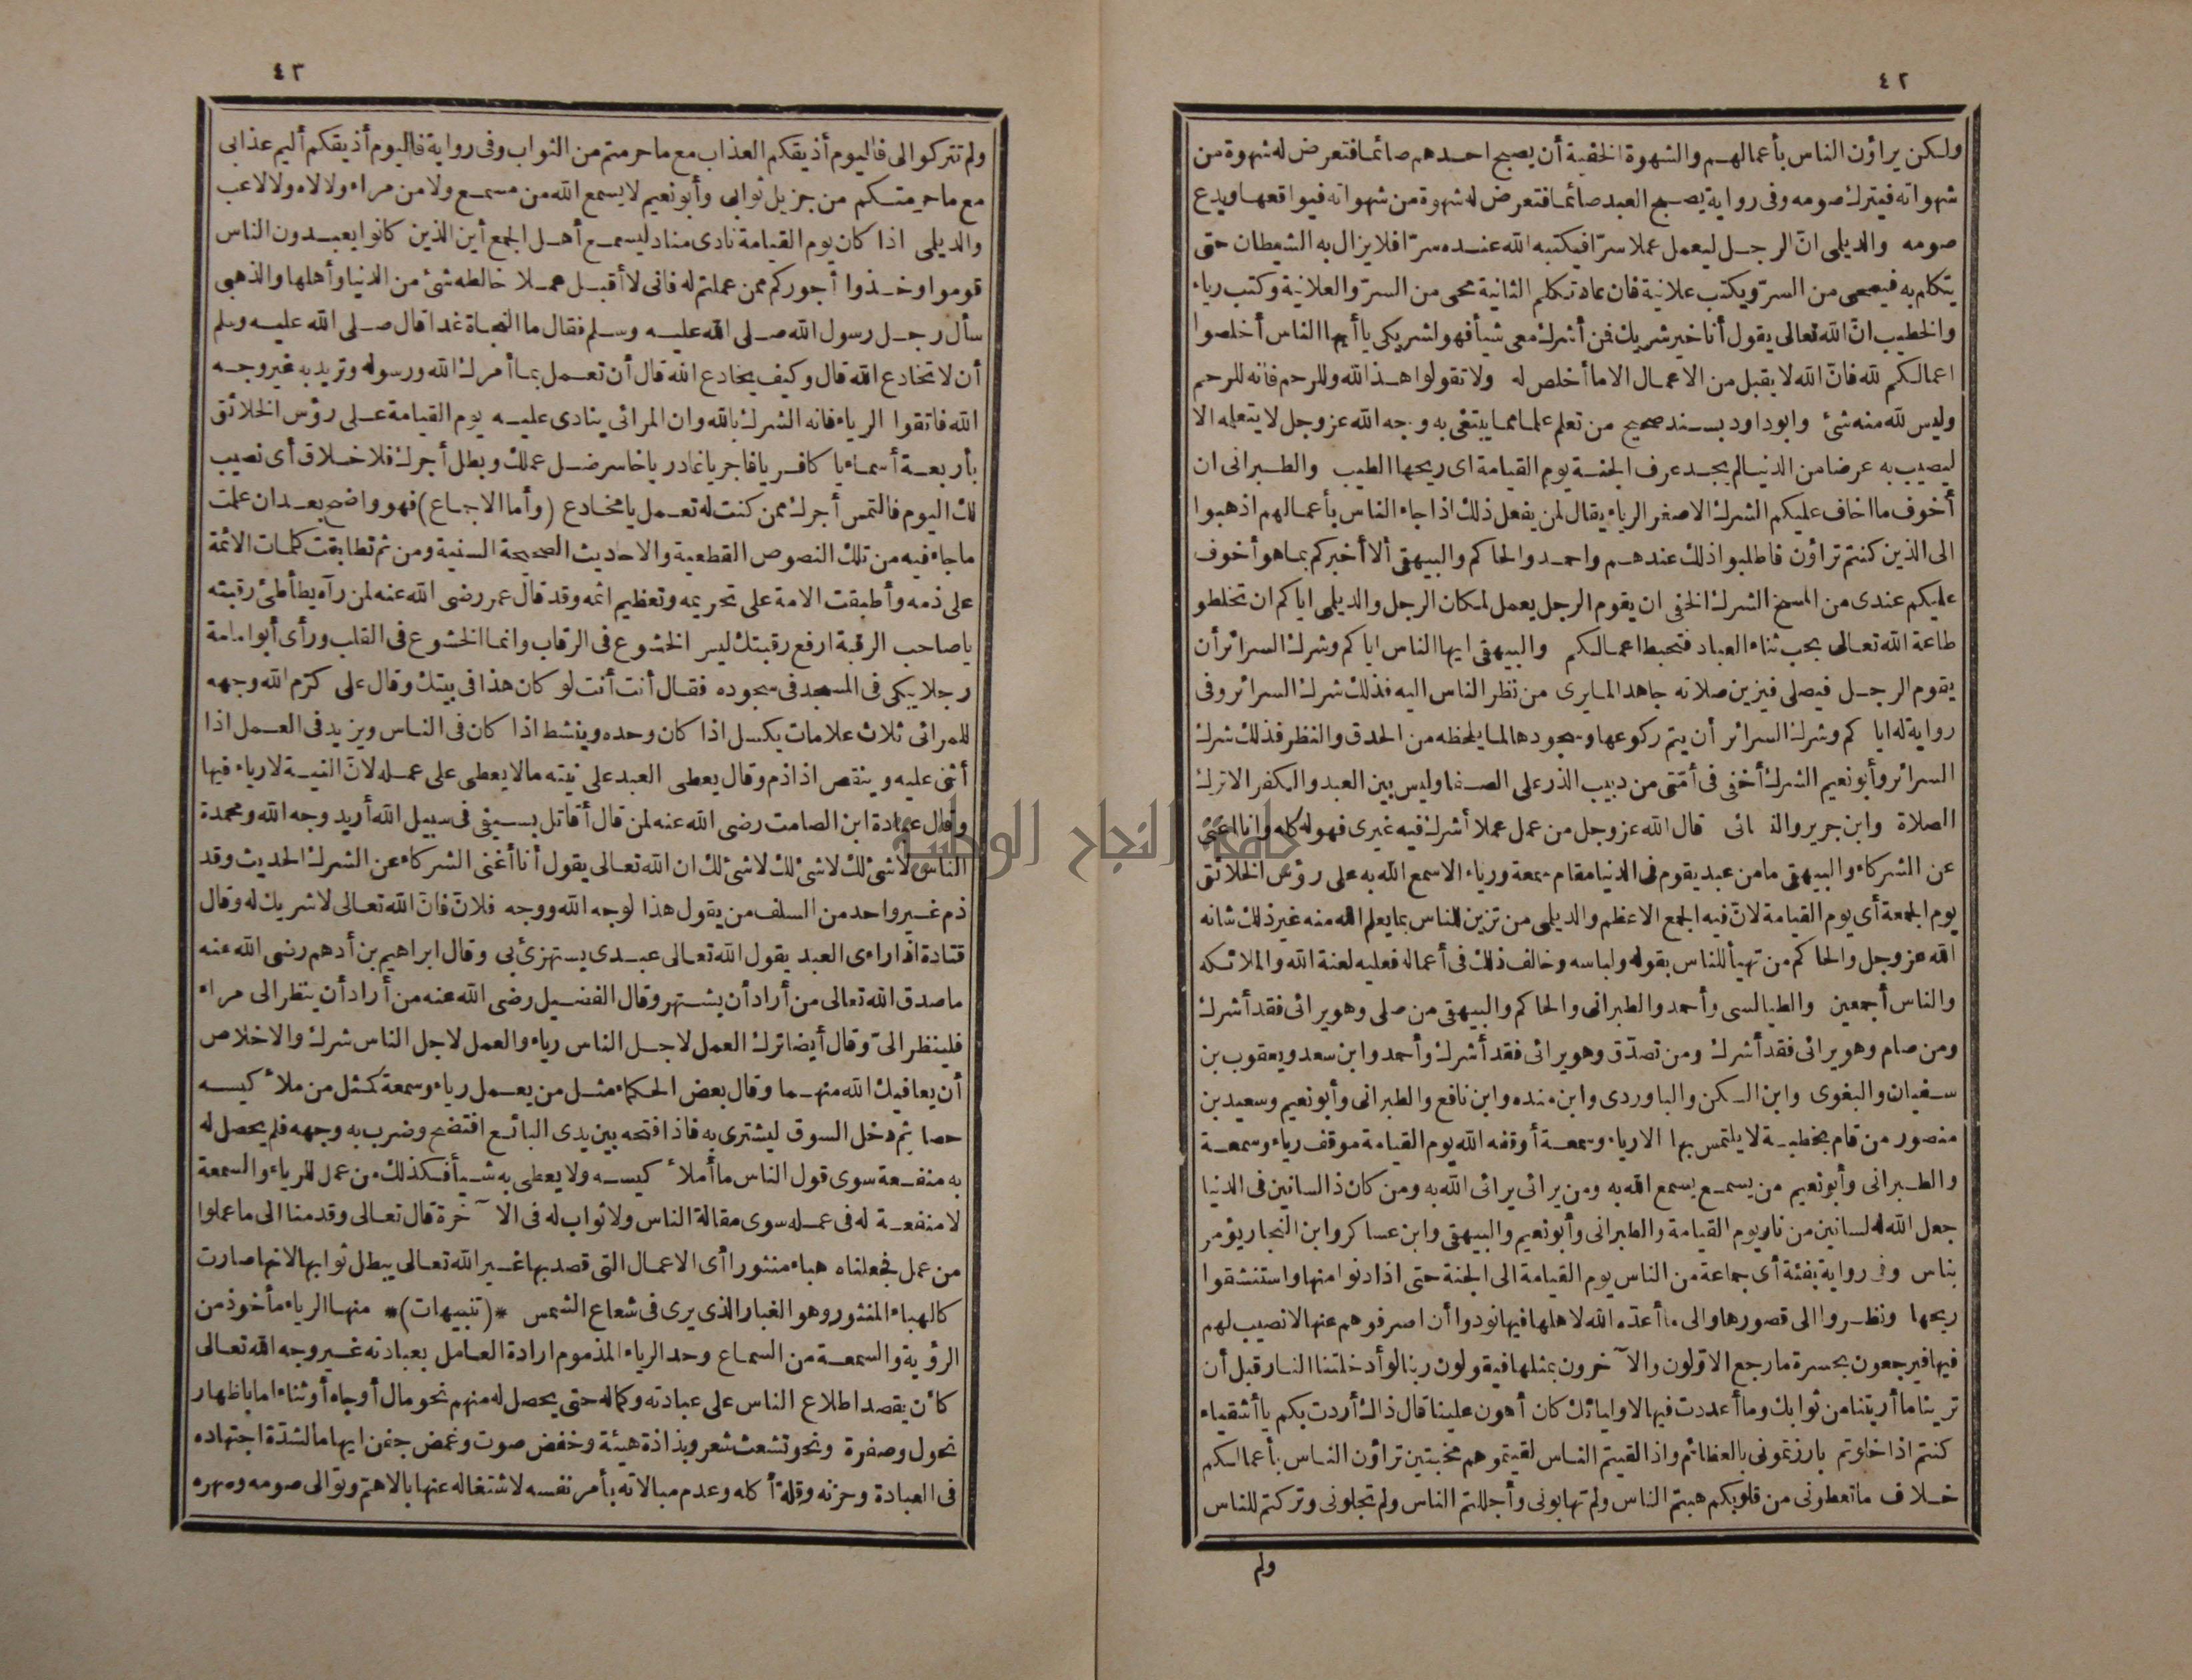 ٤٢
ولكن يراؤن الناس بأعمالهم والشهوة الخفية أن يصبح احدهم صائما فتعرض له شهوة من
شهواته فيترك صومه وفى رواية يصبح العبد صائما فتعرض له شهوة من شهواته فيواقعها ويدع
صومه والديلى انّ الرجل ليعمل عملا سرّا فيكتبه الله عنده سرّا فلا يزال به الشيطان حتى
يتكلم به فيمحى من السرّ ويكتب علانية فان عاد تكلم الثانية محى من السرّ والعلانية وكتب رياء
والخطيب انّ الله تعالى يقول أنا خير شريك فن أشرك معى شيأ فهو لشريكى يا أيها الناس أخلصوا
اعمالكم لله فانّ الله لا يقبل من الاعمال الا ما أخلص له ولا تقولوا هذا لله وللرحم فانه للرحم
وليس لله منه شئ وابوداود بسند صحيح من تعلم علما مما يبتغى به وجه الله عز وجل لا يتعلمه الا
ليصيب به عرضا من الدنيا لم يجد عرف الجنة يوم القيامة اى ريحها الطيب والطبرانى ان
أخوف ما اخاف عليكم الشرك الاصغر الرياء يقال لمن يفعل ذلك اذا جاء الناس بأعمالهم اذهبوا
الى الذين كنتم تراؤن فاطلبوا ذلك عندهم واحمد والحاكم والبيهقى ألا أخبركم بما هو أخوف
عليكم عندى من المسخ الشرك الخفى ان يقوم الرجل يعمل لمكان الرجل والديلى اياكم ان تخلطو
طاعة الله تعالى بحب ثناء العباد فتحبط اعمالكم والبيهقى ايها الناس اياكم وشرك السرائر أن
يقوم الرجل فيصلى فيزين صلاته جاهدا لما يرى من نظر الناس اليه فذلك شرك السرائر وفى
رواية له اياكم وشرك السرائر أن يتم ركوعها وسجودها لما يلحظه من الحدق والنظر فذلك شرك
السرائر وأبو نعيم الشرك أخفى فى أمّتى من دبيب الذر على الصفا وليس بين العبد والكفر الا ترك
الصلاة وابن جرير قال الله عز وجل من عمل عملا أشرك فيه غيرى فهو له كله وانا اغنى
عن الشركاء والبيهقى ما من عبد يقوم فى الدنيا مقام سمعة ورياء الا سمع الله به على رؤس الخلائق
يوم الجمعة أى يوم القيامة لانّ فيه الجمع الاعظم والديلى من تزين للناس بما يعلم الله منه غير ذلك شانه
الله عز وجل والحاكم من تهيأ للناس بقوله ولباسه وخالف ذلك فى أعماله فعليه لعنة الله والملائكه
والناس أجمعين والطيالسى وأحمد والطبرانى والحاكم والبيهقى من صلى وهو يرائى فقد أشرك
ومن صام وهو يرائى فقد أشرك ومن تصدّق وهو يرائى فقد أشرك وأحمد وابن سعد ويعقوب بن
سفيان والبغوى وابن السكن والباوردى وابن منده وابن نافع والطبرانى وأبو نعيم وسعيد بن
منصور من قام بخطبة لا يلتمس بها الا رياء وسمعة أوقفه الله يوم القيامة موقف رياء وسمعة
والطبرانى وأبو نعيم من يسمع يسمع الله به ومن يرائى يرائى الله به ومن كان ذا لسانين فى الدنيا
جعل الله له لسانين من نار يوم القيامة والطبرانى وأبو نعيم والبيهقى وابن عساكر وابن النجار يؤمر
بناس وفى رواية بفئة أى جماعة من الناس يوم القيامة الى الجنة حتى اذا دنوا منها واستنشقوا
ريحها ونظروا الى قصورها والى ما أعدّه الله لاهلها فيها نودوا أن اصرفوهم عنها لا نصيب لهم
فيها فيرجعون بحسرة ما رجع الاوّلون والآخرون بمثلها فيقولون ربنا لو أدخلتنا النار قبل أن
ترينا ما أريتنا من ثوابك وما أعددت فيها لاوليائك كان أهون علينا قال ذاك أردت بكم يا أشقياء
كنتم اذا خلوتم بارزتمونى بالعظائم واذا لقيتم الناس لقيتموهم مخبتين تراؤن الناس بأعمالكم
خلاف ما تعطونى من قلوبكم هبتم الناس ولم تهابونى وأجللتم الناس ولم تجلونى وتركتم للناس
ولم
٤٣
ولم تتركوا لى فاليوم أذيقكم العذاب مع ما حرمتم من الثواب وفى رواية فاليوم أذيقكم أليم عذابى
مع ما حرمتكم من جزيل ثوابى وأبو نعيم لا يسمع الله من مسمع ولا من مراء ولا لاه ولا لاعب
والديلى اذا كان يوم القيامة نادى مناد ليسمع أهل الجمع أين الذين كانوا يعبدون الناس
قوموا وخذوا أجوركم ممن عملتم له فانى لا أقبل عملا خالطه شئ من الدنيا وأهلها والذهبى
سأل رجل رسول الله صلى الله عليه وسلم فقال ما النجاة غدا قال صلى الله عليه وسلم
أن لا تخادع الله قال وكيف يخادع الله قال أن تعمل بما أمرك الله ورسوله وتريد به غير وجه
الله فاتقوا الرياء فانه الشرك بالله وان المرائى ينادى عليه يوم القيامة على رؤس الخلائق
بأربعة أسماء يا كافر يا فاجر يا غادر يا خاسر ضل عملك وبطل أجرك فلا خلاق أى نصيب
لك اليوم فالتمس أجرك ممن كنت له تعمل يا مخادع (وأما الاجماع) فهو واضح بعد ان علمت
ما جاء فيه من تلك النصوص القطعية والاحاديث الصحيحة السنية ومن ثم تطابقت كلمات الائمة
على ذمه وأطبقت الامة على تحريمه وتعظيم اثمه وقد قال عمر رضى الله عنه لمن رآه يطأطئ رقبته
يا صاحب الرقبة ارفع رقبتك ليس الخشوع فى الرقاب وانما الخشوع فى القلب ورأى أبو امامة
رجلا يبكى فى المسجد فى سجوده فقال أنت أنت لو كان هذا فى بيتك وقال على كرّم الله وجهه
للمرائى ثلاث علامات يكسل اذا كان وحده وينشط اذا كان فى الناس ويزيد فى العمل اذا
أثنى عليه وينقص اذا ذم وقال يعطى العبد على نيته ما لا يعطى على عمله لانّ النية لا رياء فيها
وقال عبادة ابن الصامت رضى الله عنه لمن قال أقاتل بسيفى فى سبيل الله أريد وجه الله ومحمدة
الناس لا شئ لك لا شئ لك لا شئ لك ان الله تعالى يقول أنا أغنى الشركاء عن الشرك الحديث وقد
ذم غير واحد من السلف من يقول هذا لوجه الله ووجه فلان فانّ الله تعالى لا شريك له وقال
قتادة اذا راءى العبد يقول الله تعالى عبدى يستهزئ بى وقال ابراهيم بن أدهم رضى الله عنه
ما صدق الله تعالى من أراد أن يشتهر وقال الفضيل رضى الله عنه من أراد أن ينظر الى مراء
فلينظر الىّ وقال أيضا ترك العمل لاجل الناس رياء والعمل لاجل الناس شرك والاخلاص
أن يعافيك الله منهما وقال بعض الحكماء مثل من يعمل رياء وسمعة كمثل من ملأ كيسه
حصا ثم دخل السوق ليشترى به فاذا فتحه بين يدى البائع افتضح وضرب به وجهه فلم يحصل له
به منفعة سوى قول الناس ما أملأ كيسه ولا يعطى به شيأ فكذلك من عمل للرياء والسمعة
لا منفعة له فى عمله سوى مقالة الناس ولا ثواب له فى الآخرة قال تعالى وقدمنا الى ما عملوا
من عمل فجعلناه هباء منثورا أى الاعمال التى قصد بها غير الله تعالى يبطل ثوابها لانها صارت
كالهباء المنثور وهو الغبار الذى يرى فى شعاع الشمس *(تنبيهات)* منها الرياء مأخوذ من
الرؤية والسمعة من السماع وحد الرياء المذموم ارادة العامل بعبادته غير وجه الله تعالى
كأن يقصد اطلاع الناس على عبادته وكماله حتى يحصل له منهم نحو مال أو جاه أو ثناء اما باظهار
نحول وصفرة ونحو تشعث شعر وبذاذة هيئة وخفض صوت وغمض جفن ايهاما لشدّة اجتهاده
فى العبادة وحزنه وقلة أكله وعدم مبالاته بأمر نفسه لاشتغاله عنها بالاهتم وتوالى صومه وسهره
جامعة النجاح الوطنية